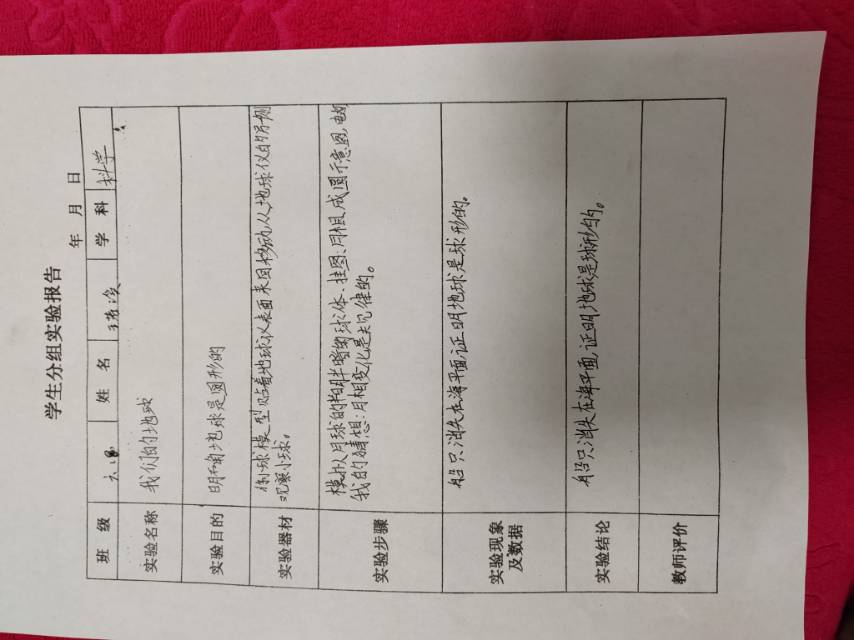 学生分组实验报告
年 月 日
班 级 姓 名 学 科 科学
实验名称 我们的地球
实验目的 明确地球是圆形的
实验器材 球模型贴着地球仪表面来回移动从地球仪的另侧
观察小球。
实验步骤 模拟月球的半明半暗的球体、挂图:月相成图示意图,电
我的猜想:月相变化是有规律的。
实验现象
及数据 船只消失在海平面,证明地球是球形的。
实验结论 船只消失在海平面,证明地球是球形的。
教师评价